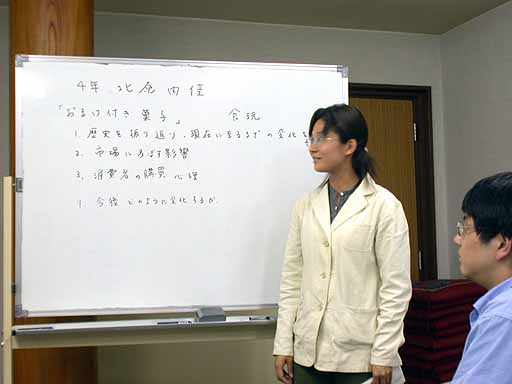 4年 北原 由佳
「おまけ付き菓子」 食玩
1. 歴史を振り返り、現在に至るまでの変化を
2. 市場に及ぼす影響
3. 消費者の購買心理
1. 今後どのように変化するか.